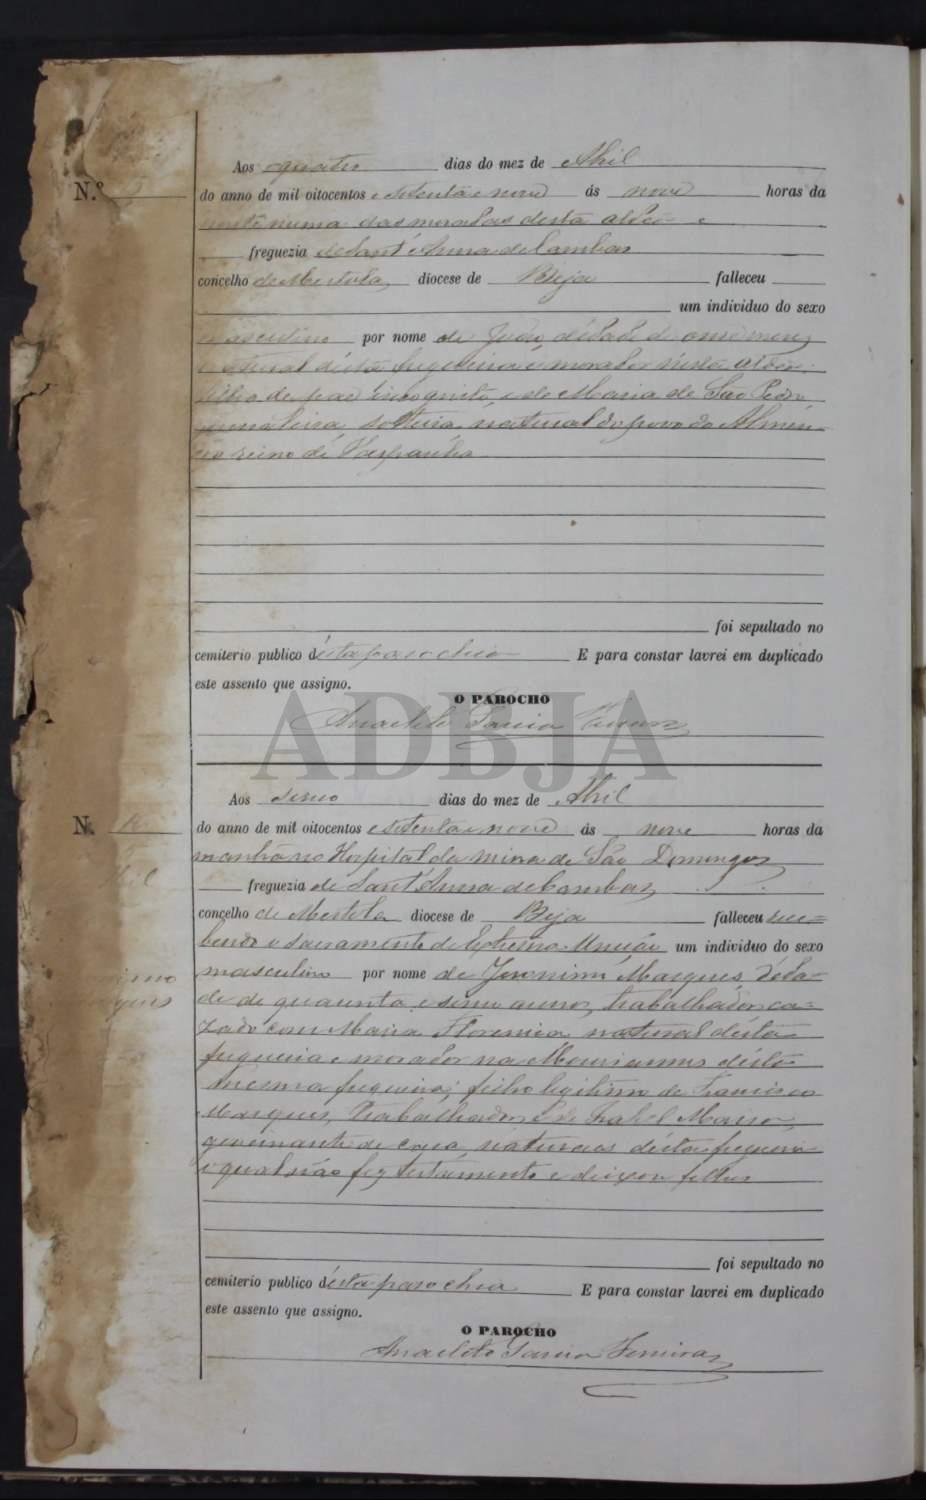 Aos quatro dias do mez de Abril
N.º
do anno de mil oitocentos e setenta e nove ás nove horas da
noite numa das moradas desta aldeia e
freguezia de Sant'Anna de Cambas
concelho de Mertola, diocese de Beja falleceu
um individuo do sexo
masculino por nome de João, d'edade de onze mezes
natural d'esta freguezia e morador n'esta aldeia
filho de pae incognito, e de Maria de São Pedro
solteira, natural do povo do
reino de Hespanha
foi sepultado no
cemiterio publico d'esta parochia E para constar lavrei em duplicado
este assento que assigno.
O PAROCHO
Anacleto Garcia
ADBJA
Aos sinco dias do mez de Abril
N.
do anno de mil oitocentos e setenta e nove ás nove horas da
manhã no Hospital da mina de São Domingos
freguezia de Sant'Anna de Cambas
concelho de Mertola diocese de Beja falleceu rece=
bendo o sacramento da Extrema Unção um individuo do sexo
masculino por nome de Jeronimo Marques, d'eda=
de de quarenta e sinco annos, trabalhador, ca=
zado com Maria natural d'esta
freguezia e morador na d'esta
mesma freguezia; filho legitimo de Francisco
Marques, trabalhador, e de Izabel Maria,
governante de caza, naturaes d'esta freguezia
o qual não fez testamento e deixou filhos
foi sepultado no
cemiterio publico d'esta parochia E para constar lavrei em duplicado
este assento que assigno.
O PAROCHO
Anacleto Garcia